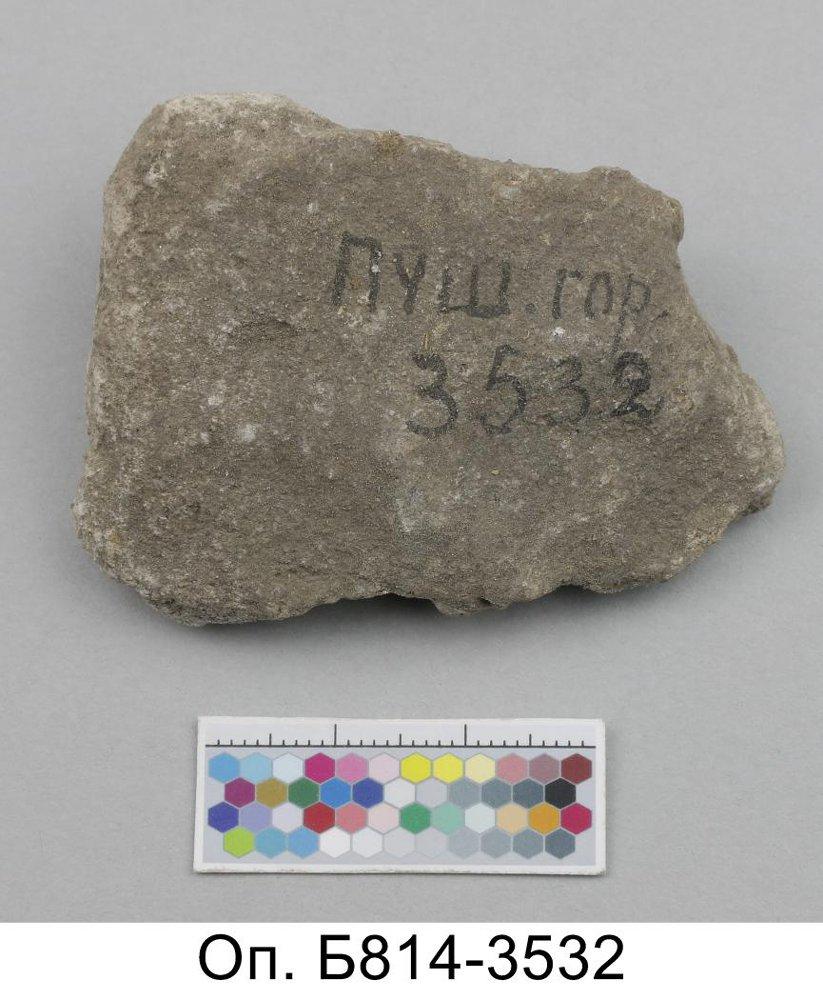 Пуш. гор.
3532
Оп. Б814-3532